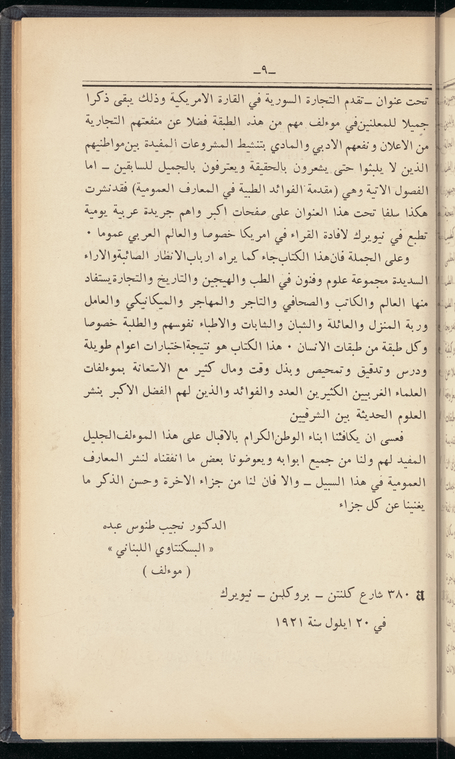 ـ٩ـ
تحت عنوان ـ تقدم التجارة السورية في القارة الامريكية وذلك يبقى ذكرا
جميلا للمعلنين في موءلف مهم من هذه الطبقة فضلا عن منفعتهم التجارية
من الاعلان ونفعهم الادبي والمادي بتنشيط المشروعات المفيدة بين مواطنيهم
الذين لا يلبثوا حتى يشعرون بالحقيقة ويعترفون بالجميل للسابقين ـ اما
الفصول الاتية وهي (مقدمة الفوائد الطبية في المعارف العمومية) فقد نشرت
هكذا سلفا تحت هذا العنوان على صفحات اكبر واهم جريدة عربية يومية
تطبع في نيويرك لافادة القراء في امريكا خصوصا والعالم العربي عموما ٠
وعلى الجملة فان هذا الكتاب جاء كما يراه ارباب الانظار الصائبة والاراء
السديدة مجموعة علوم وفنون في الطب والهيجين والتاريخ والتجارة يستفاد
منها العالم والكاتب والصحافي والتاجر والمهاجر والميكانيكي والعامل
وربة المنزل والعائلة والشبان والشابات والاطباء نفوسهم والطلبة خصوصا
وكل طبقة من طبقات الانسان ٠ هذا الكتاب هو نتيجة اختبارات اعوام طويلة
ودرس وتدقيق وتمحيص وبذل وقت ومال كثير مع الاستعانة بموءلفات
العلماء الغربيين الكثيرين العدد والفوائد والذين لهم الفضل الاكبر بنشر
العلوم الحديثة بين الشرقيين
فعسى ان يكافئنا ابناء الوطن الكرام بالاقبال على هذا الموءلف الجليل
المفيد لهم ولنا من جميع ابوابه ويعوضونا بعض ما انفقناه لنشر المعارف
العمومية في هذا السبيل ـ والا فان لنا من جزاء الاخرة وحسن الذكر ما
يغنينا عن كل جزاء
الدكتور نجيب طنوس عبده
« البسكنتاوي اللبناني »
( موءلف )
a ٣٨٠ شارع كلنتن ـ بروكلين ـ نيويرك
في ٢٠ ايلول سنة ١٩٢١